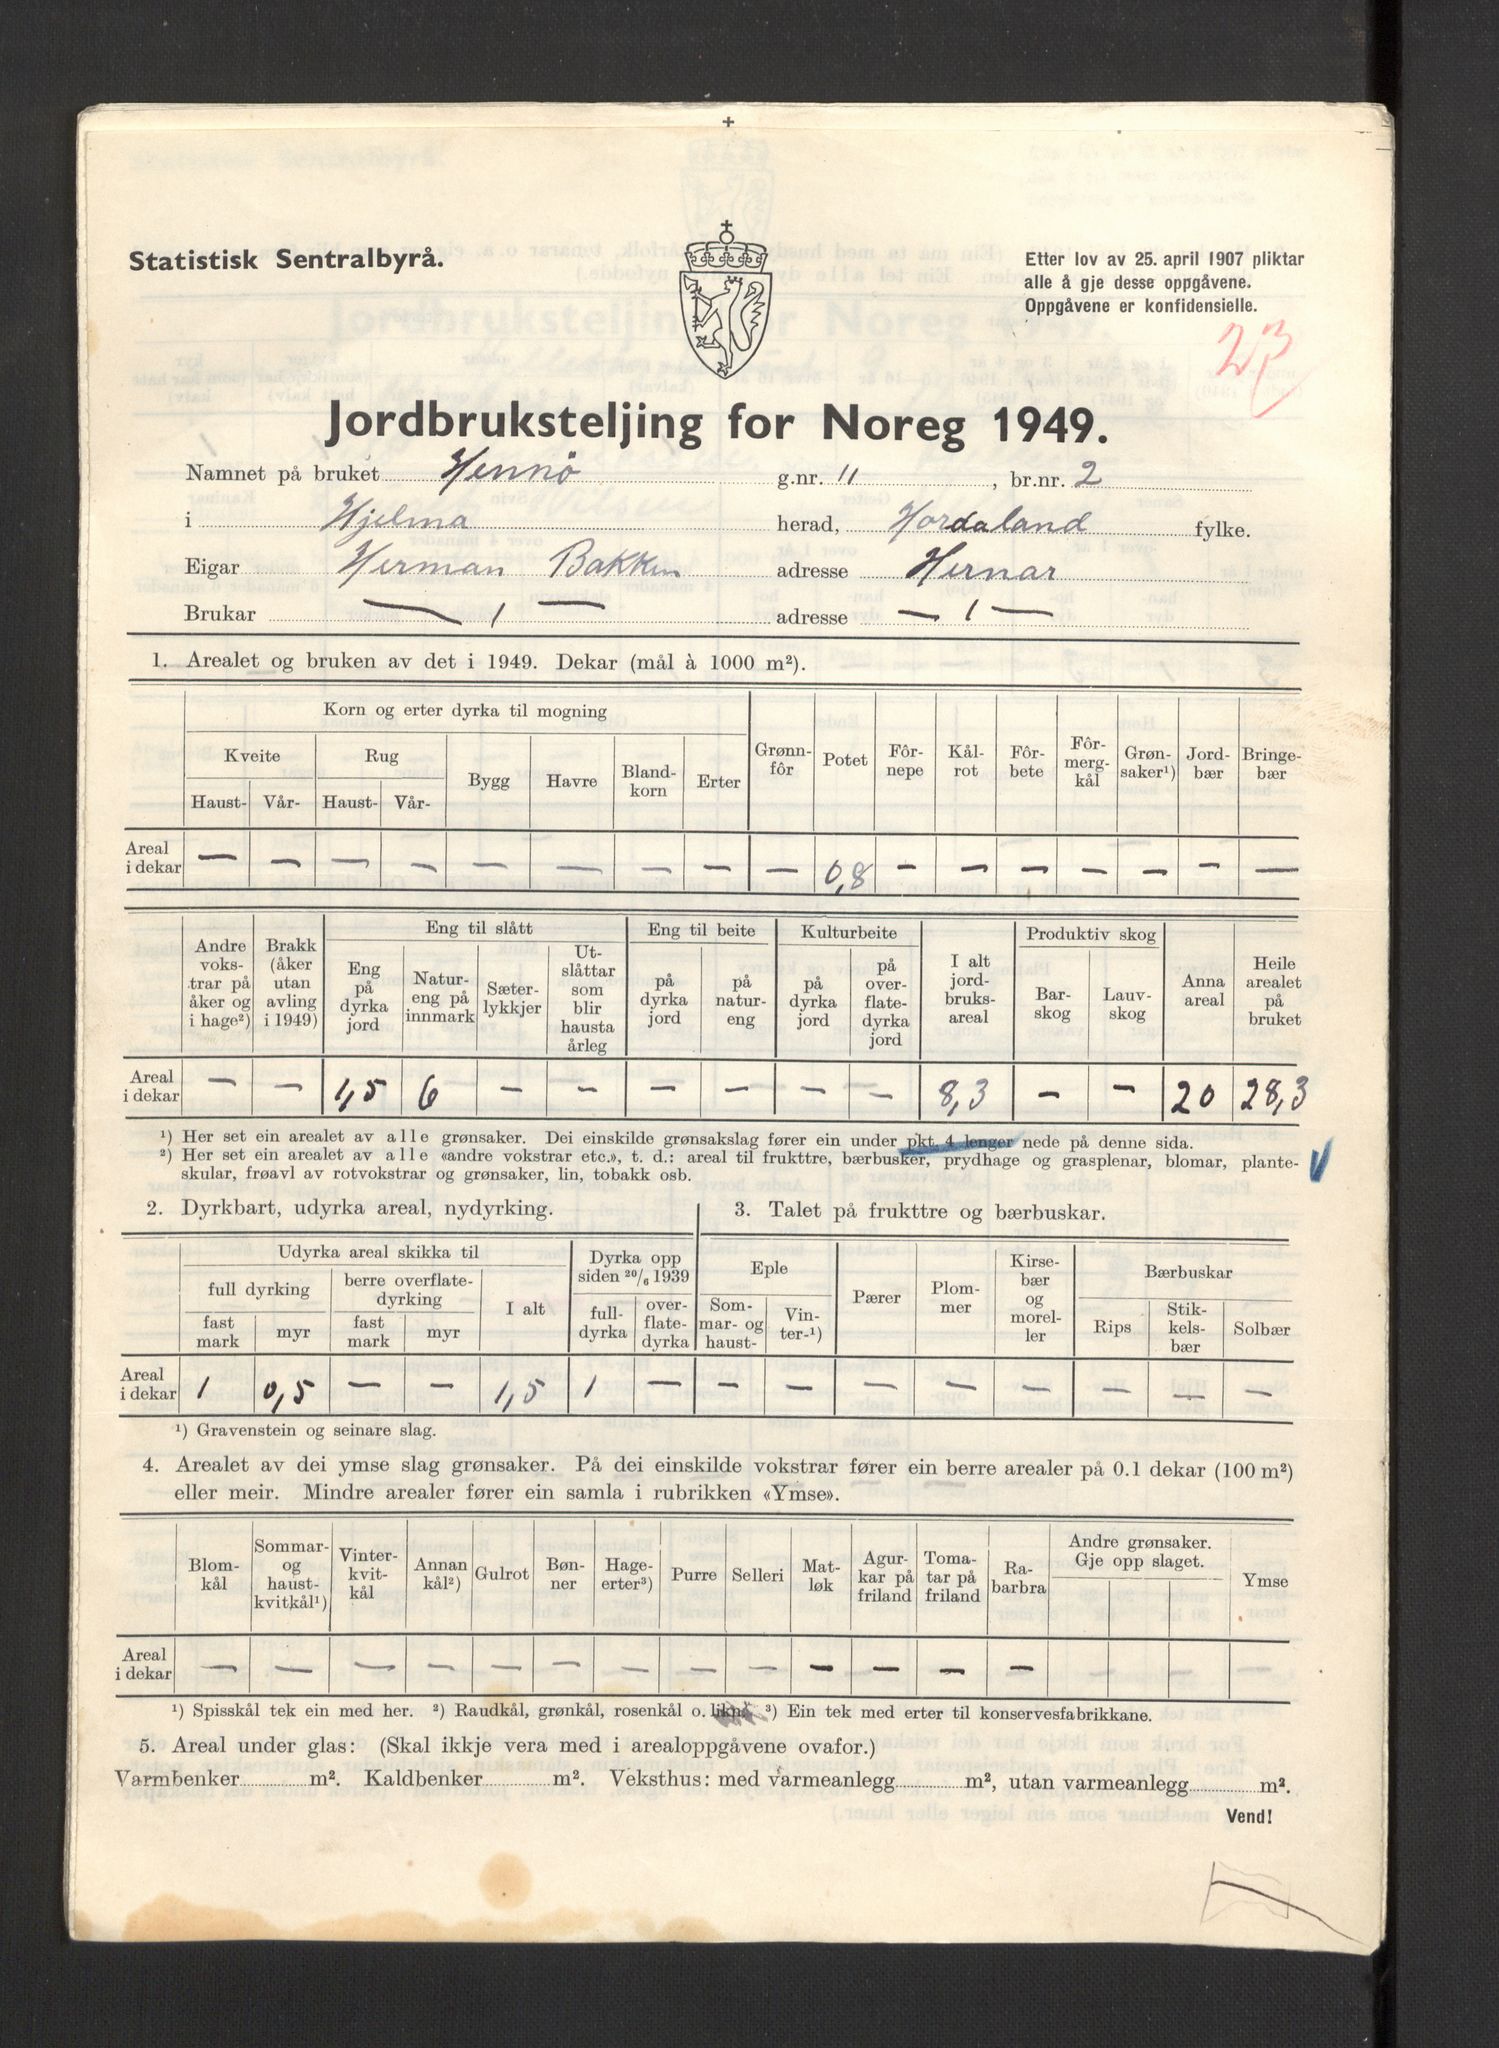 Statistisk Sentralbyrå.
Etter lov av 25. april 1907 pliktar
alle å gje desse oppgåvene.
Oppgåvene er konfidensielle.
23
Jordbruksteljing for Noreg 1949.
Namnet på bruket Hennö g.nr. 11, br.nr. 2
i Hjelma herad, Hordaland fylke.
Eigar Herman Bakken adresse Hernar
Brukar — ı — adresse — ı —
1. Arealet og bruken av det i 1949. Dekar (mål à 1000 m²).
Korn og erter dyrka til mogning
Kveite Rug Bygg Havre Bland-korn Erter Grønn-fôr Potet Fôr-nepe Kål-rot Fôr-bete Fôr-mergkål Grøn-saker¹) Jord-bær Bringe-bær
Haust- Vår- Haust- Vår-
Areal i dekar — — — — — — — — — 0,8 — — — — — — —
Andre voks-trar på åker og i hage²) Brakk (åker utan avling i 1949) Eng til slått Eng til beite Kulturbeite I alt jord-bruks-areal Produktiv skog Anna areal Heile arealet på bruket
Eng på dyrka jord Natur-eng på innmark Sæter-lykkjer Ut-slåttar som blir hausta årleg på dyrka jord på natur-eng på dyrka jord på over-flate-dyrka jord Bar-skog Lauv-skog
Areal i dekar — — 1,5 6 — — — — — — 8,3 — — 20 28,3
¹) Her set ein arealet av alle grønsaker. Dei einskilde grønsakslag fører ein under pkt. 4 lenger nede på denne sida.
²) Her set ein arealet av alle «andre vokstrar etc.», t. d.: areal til frukttre, bærbusker, prydhage og grasplenar, blomar, plante-
skular, frøavl av rotvokstrar og grønsaker, lin, tobakk osb.
2. Dyrkbart, udyrka areal, nydyrking.
3. Talet på frukttre og bærbuskar.
Udyrka areal skikka til Dyrka opp siden 20/6 1939 Eple Pærer Plom-mer Kirse-bær og morel-ler Bærbuskar
full dyrking berre overflate-dyrking I alt full-dyrka over-flate-dyrka Som-mar- og haust- Vin-ter-¹) Rips Stik-kels-bær Solbær
fast mark myr fast mark myr
Areal i dekar 1 0,5 — — 1,5 1 — — — — — — — — —
¹) Gravenstein og seinare slag.
4. Arealet av dei ymse slag grønsaker. På dei einskilde vokstrar fører ein berre arealer på 0.1 dekar (100 m²)
eller meir. Mindre arealer fører ein samla i rubrikken «Ymse».
Blom-kål Sommar- og haust-kvitkål¹) Vinter-kvit-kål Annan kål²) Gulrot Bøn-ner Hage-erter³) Purre Selleri Mat-løk Agur-kar på friland Toma-tar på friland Ra-barbra Andre grønsaker. Gje opp slaget. Ymse
Areal i dekar — — — — — — — — — — — — — — — — —
¹) Spisskål tek ein med her. ²) Raudkål, grønkål, rosenkål o. likn. ³) Ein tek med erter til konservesfabrikkane.
5. Areal under glas: (Skal ikkje vera med i arealoppgåvene ovafor.)
Varmbenker m². Kaldbenker m². Veksthus: med varmeanlegg m², utan varmeanlegg m².
Vend!